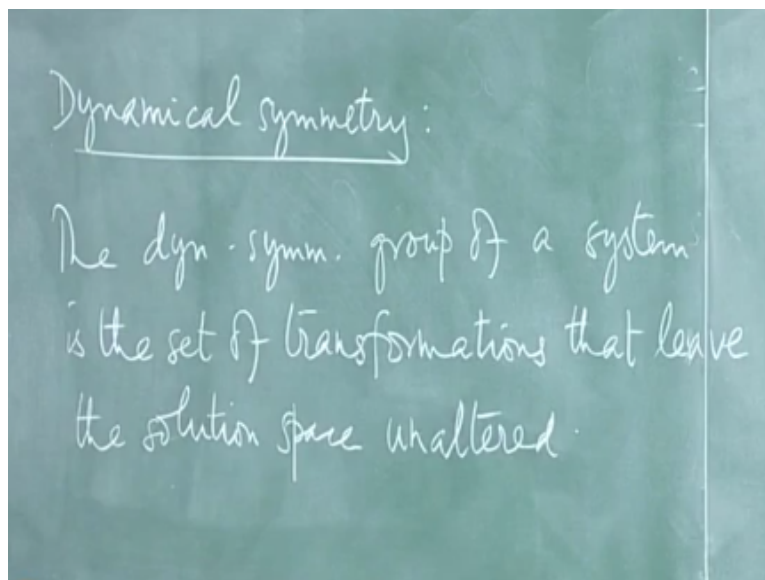 Dynamical symmetry:
The dyn. symm. group of a system
is the set of transformations that leave
the solution space unaltered.